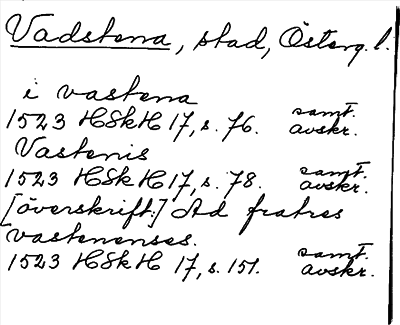 Vadstena, stad, Österg. l.
i vastena
1523 HSkH 17, s. 76. samt. avskr.
Vastenis
1523 HSkH 17, s. 78. samt. avskr.
[överskrift:] Ad fratres
vastenenses.
1523 HSkH 17, s. 151. samt. avskr.